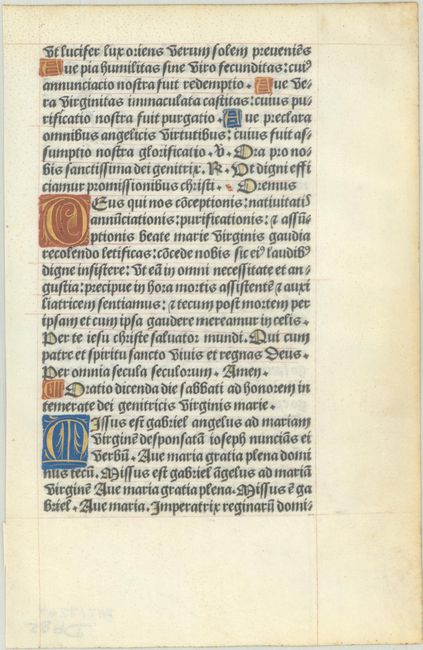 Ut lucifer lux oriens Verum solem preveniēs
Aue pia humilitas sine Viro fecunditas: cui⁹
annunciacio nostra fuit redemptio. Aue Ve-
ra Virginitas immaculata castitas: cuius pu-
rificatio nostra fuit purgatio. Aue preclara
omnibus angelicis Virtutibus: cuius fuit as-
sumptio nostra glorificatio. V. Ora pro no-
bis sanctissima dei genitrix. R. Ut digni effi
ciamur promissionibus christi. Oremus
Deus qui nos cōceptionis: natiuitatis
annūciationis: purificationis: & assū-
ptionis beate marie Virginis gaudia
recolendo letificas: cōcede nobis sic ei⁹ laudib⁹
digne insistere: Ut eā in omni necessitate et an-
gustia: precipue in hora mortis assistentē & auxi
liatricem sentiamus: & tecum post mortem per
ipsam et cum ipsa gaudere mereamur in celis.
Per te iesu christe saluator mundi. Qui cum
patre et spiritu sancto Viuis et regnas Deus.
Per omnia secula seculorum. Amen.
Oratio dicenda die sabbati ad honorem in
temerate dei genitricis Virginis marie.
Missus est gabriel angelus ad mariam
Virginē desponsatā ioseph nuncians ei
Verbū. Aue maria gratia plena domi
nus tecū. Missus est gabriel āgelus ad mariā
Virginē Aue maria gratia plena. Missus ē ga
briel. Aue maria. Imperatrix reginarū domi-